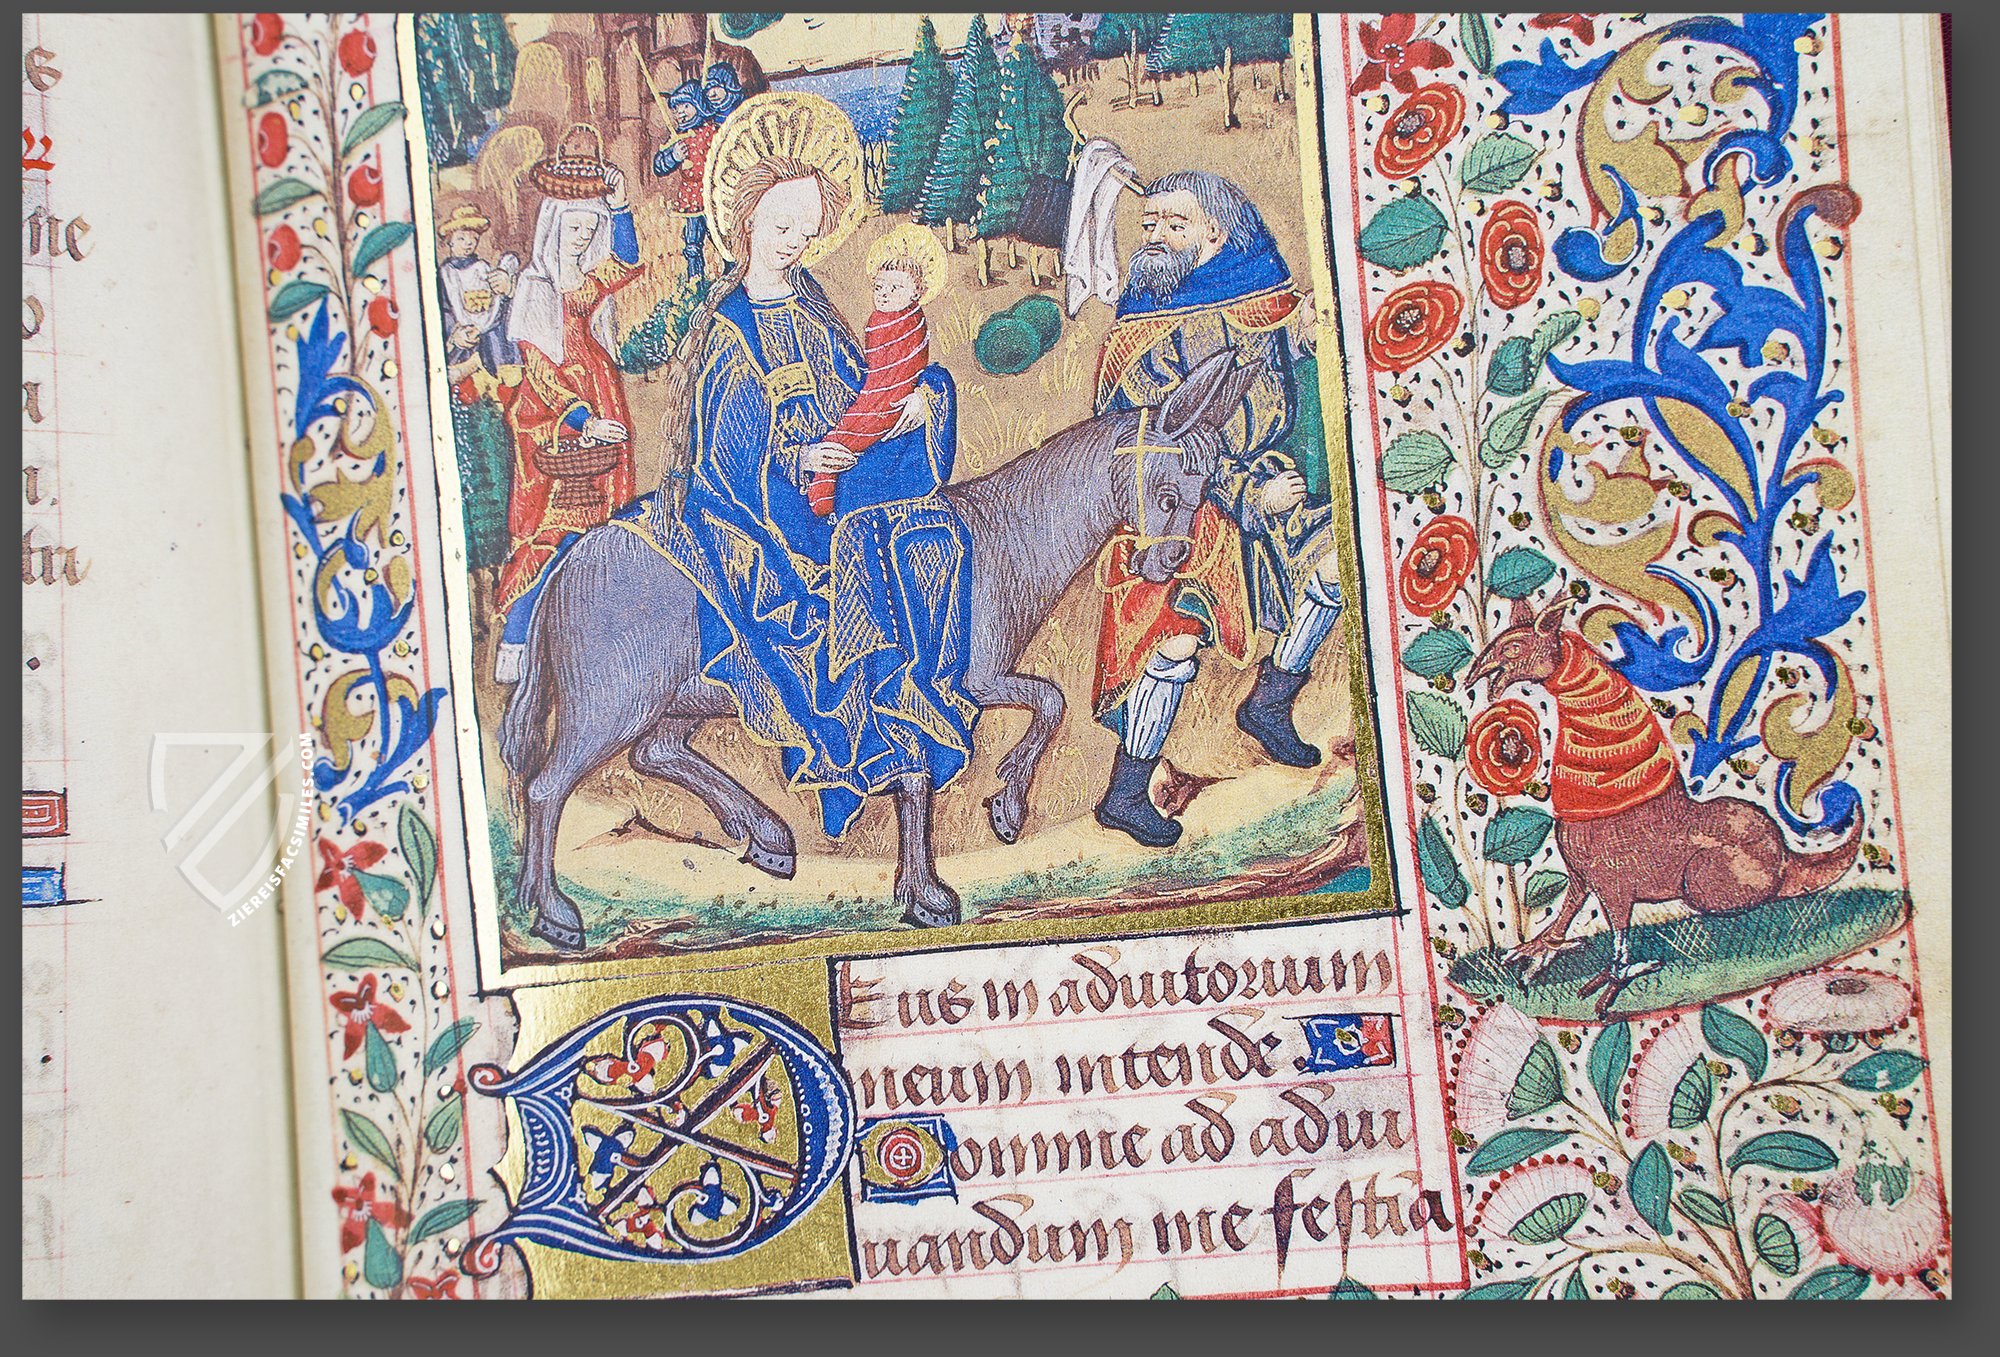 s
ne
o
a
i.
tri
Eus in adiutorium
meum intende.
Domine ad adiu
uandum me festia
ZIEREISFACSIMILES.COM